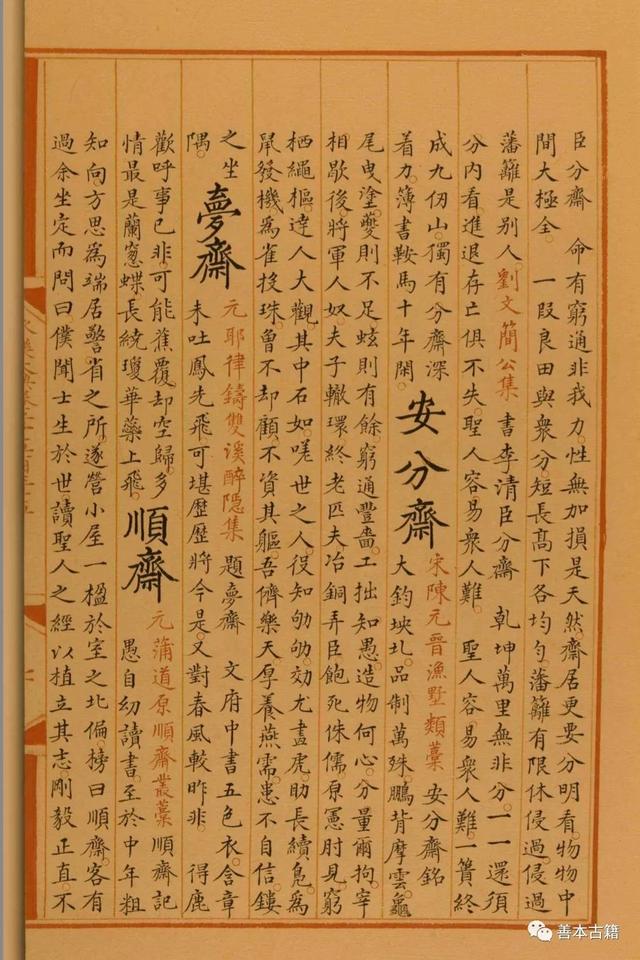 臣分齋　命有窮通非我力。性無加損是天然。齋居更要分明看。物物中
間大極全　一段良田與衆分。短長髙下各均勻。藩籬有限休侵過。侵過
藩籬是别人。劉文簡公集　書李清臣分齋　乾坤萬里無非分。一一還須
分内看。進退存亡俱不失。聖人容易衆人難。　聖人容易衆人難。一簣終
成九仞山。獨有分齋深
着力。簿書鞍馬十年閑。
安分齋
宋陳元晉漁墅類藁　安分齋銘
大鈞坱圠。品制萬殊。鵬背摩雲。龜
尾曳塗。夔則不足。蚿則有餘。窮通豐嗇。工拙知愚。造物何心。分量爾拘。宰
相歇後。將軍人奴。夫子轍環終老。匹夫冶銅弄臣。飽死侏儒。原憲肘見。窮
栖繩樞。達人大觀。其中石如。嗟世之人。役知劬劬。効尤畫虎。助長續鳧。為
鼠發機。為雀投珠。曾不却顧。不資其軀。吾儕樂天。厚養燕需。患不自信。鏤
之坐
隅。
夢齋
元耶律鑄雙溪醉隱集　題夢齋　文府中書五色衣。含章
未吐鳳先飛。可堪歷歷將今是。又對春風較昨非。　得鹿
歡呼事已非。可能蕉覆却空歸。多
情最是蘭窻蝶。長繞瓊華藥上飛。
順齋
元蒲道原順齋叢藁　順齋記
愚自幼讀書。至於中年粗
知向方。思為端居警省之所。遂營小屋一楹於室之北偏。榜曰順齋。客有
過余坐定而問曰。僕聞士生於世。讀聖人之經。以植立其志。剛毅正直。不
善本古籍